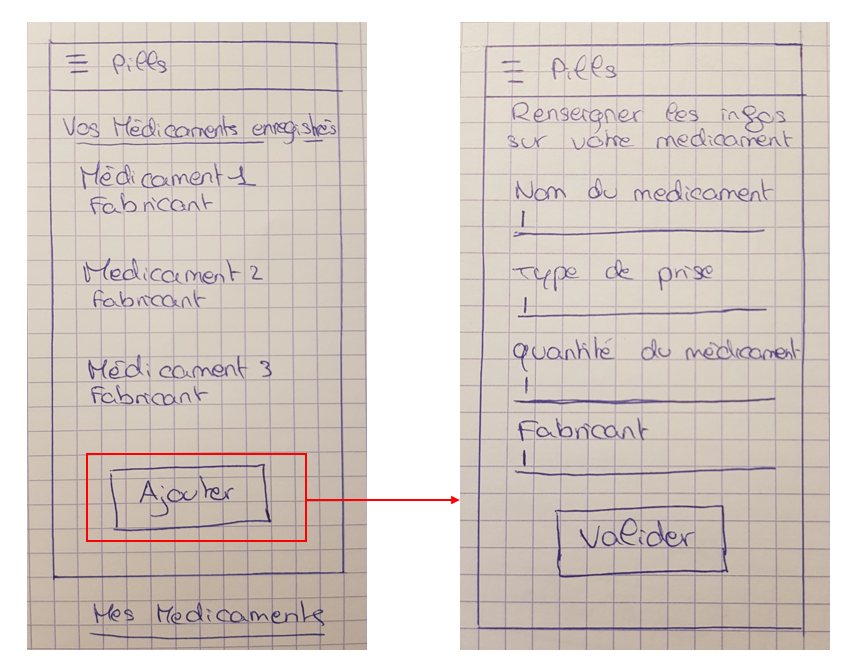 Pills
Vos Médicaments enregistrés
Médicament 1
Fabricant
Medicament 2
Fabricant
Médicament 3
Fabricant
Ajouter
Mes Medicaments
Pills
Renseigner les infos
sur votre medicament
Nom du medicament
Type de prise
quantité du médicament
Fabricant
Valider